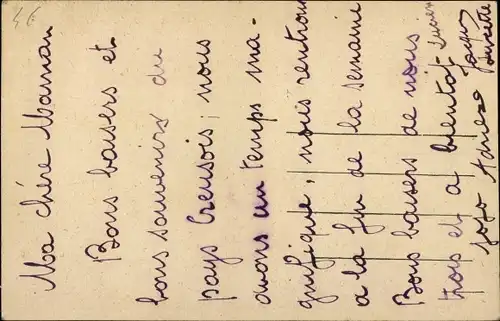 Ma chère Maman
Bons baisers et
bons souvenirs du
pays Creusois; nous
avons un temps ma-
gnifique, nous rentrons
a la fin de la semaine
Bons baisers de nous
trois et a bientot